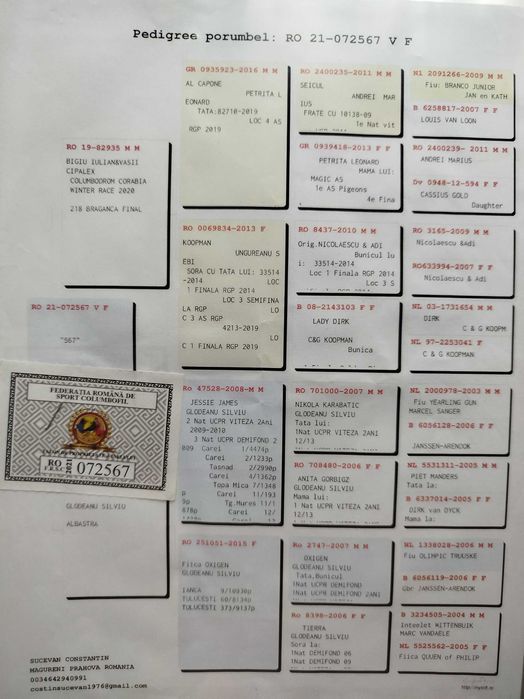 Pedigree porumbel: RO 21-072567 V F
RO 21-072567 V F
"567"
FEDERAȚIA ROMÂNĂ DE
SPORT COLUMBOFIL
RO
F.R.S.C.
2021
072567
GLODEANU SILVIU
ALBASTRA
RO 19-82935 M M
BIGIU IULIAN&VASII
CIPALEX
COLUMBODROM CORABIA
WINTER RACE 2020
218 BRAGANCA FINAL
RO 251051-2015 F
Fiica OXIGEN
GLODEANU SILVIU
IANCA 9/10930p
TULUCESTI 60/8134p
TULUCESTI 373/9137p
GR 0935923-2016 M M
AL CAPONE
PETRITA L
EONARD
TATA:82710-2019
LOC 4 AS
RGP 2019
RO 0069834-2013 F
KOOPMAN
UNGUREANU S
EBI
SORA CU TATA LUI: 33514
-2014 LOC
1 FINALA RGP 2014
LOC 3 SEMIFINA
LA RGP LO
C 3 AS RGP
4213-2019
LO
C 1 FINALA RGP 2019
Ro 47528-2008-M M
JESSIE JAMES
GLODEANU SILVIU
2 Nat UCPR VITEZA 2Ani
2009-2010
3 Nat UCPR DEMIFOND 2
809 Carei 1/4474p
Carei 2/1233p
Tasnad 2/2990p
Carei 4/1362p
Topa Mica 7/1348
p Carei 11/193
9p Tg.Mures 11/1
878p Carei 12/
RO 2400235-2011 M M
SEICUL
ANDREI MAR
IUS
FRATE CU 10138-09
1e Nat vit
GR 0939418-2013 F F
PETRITA LEONARD
MAMA LUI:
MAGIC AS
1e AS Pigeons
4e Fina
RO 8437-2010 M M
Orig.NICOLAESCU & ADI
Bunicul lu
i: 33514-2014
Loc 1 Finala RGP 2014
Loc 3 S
B 08-2143103 F F
LADY DIRK
C&G KOOPMAN
Bunica
RO 701000-2007 M M
NIKOLA KARABATIC
GLODEANU SILVIU
Tata lui:
1Nat UCPR VITEZA 2ANI
12/13
RO 708480-2006 F F
ANITA GORBIGZ
GLODEANU SILVIU
Mama lui:
1 Nat UCPR VITEZA 2ANI
12/13
Ro 2747-2007 M M
OXIGEN
GLODEANU SILVIU
Tata,Bunicul
1Nat UCPR DEMIFOND
1Nat UCPR DEMIFOND 2ANI
Ro 8398-2006 F F
TIERRA
GLODEANU SILVIU
Sora la:
1Nat DEMIFOND 06
1Nat DEMIFOND 09
Nl 2091266-2009 M M
Fiu: BRANCO JUNIOR
JAN en KATH
B 6258817-2007 F F
LOUIS VAN LOON
RO 2400239- 2011 M M
ANDREI MARIUS
Dv 0948-12-594 F F
CASSIUS GOLD
Daughter
RO 3165-2009 M M
Nicolaescu &Adi
RO633994-2007 F F
Nicolaescu & Adi
NL 03-1731654 M M
DIRK
C & G KOOPM
NL 97-2253041 F
C & G KOOPMAN
NL 2000978-2003 M M
Fiu YEARLING GUN
MARCEL SANGER
B 6056128-2006 F F
JANSSEN-ARENDOK
NL 5531311-2005 M M
PIET MANDERS
Tata la:
B 6337014-2005 F F
DIRK van DYCK
Mama la:
NL 1338028-2006 M M
Fiu OLIMPIC TRUUSKE
B 6056119-2006 F F
Gbr JANSSEN-ARENDOK
B 3234505-2004 M M
Inteelet WITTENBUIK
MARC VANDAELE
NL 5525562-2005 F F
Fiica QUUEN of PHILIP
SUCEVAN CONSTANTIN
MAGURENI PRAHOVA ROMANIA
0034642940991
costinsucevan1976@gmail.com